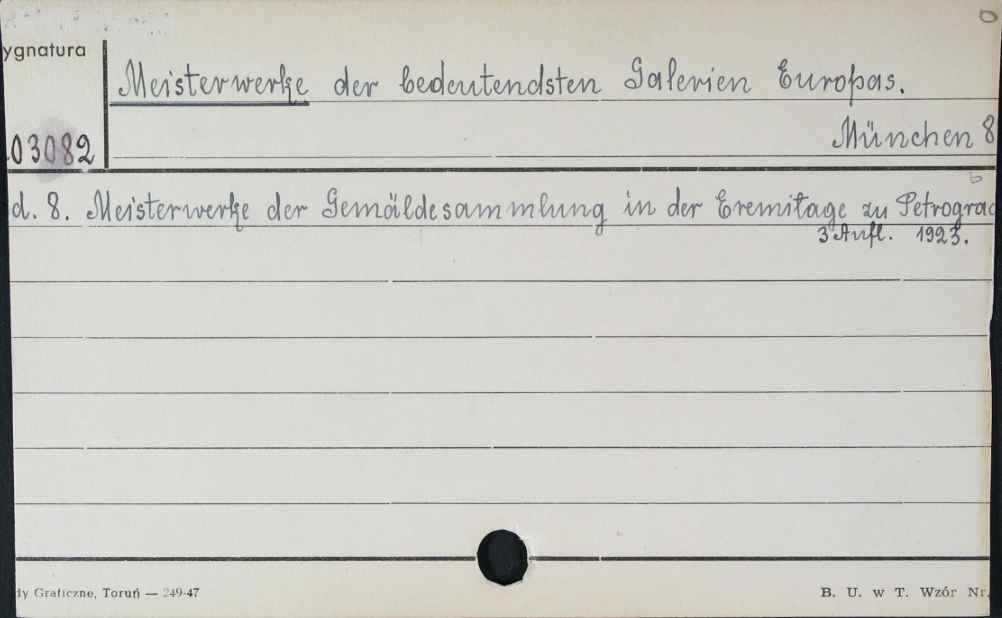 ygnatura
Meisterwerke der bedeutendsten Galerien Europas.
München 8
03082
d. 8. Meisterwerke der Gemäldesammlung in der Eremitage zu Petrograd
3 Aufl. 1923.
dy Graficzne, Toruń — 249-47
B. U. w T. Wzór Nr.